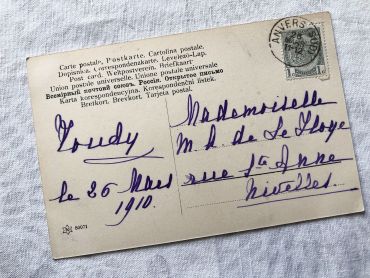 Carte postale, Postkarte. Cartolina postale.
Dopisnica. Correspondenzkarte. Levelezö-Lap.
Post card. Weltpostverein. Briefkaart
Union postale universelle. Unione postale universale
Всемірный почтовый союзъ. Россія. Открытое письмо
Karta korespondencyjna. Korespondenční lístek.
Brefkort. Brevkort. Tarjeta postal.
ANVERS
1 1
Mademoiselle
M. A. de
rue Ste Anne
Nivelles.
le 26 Mars
1910.